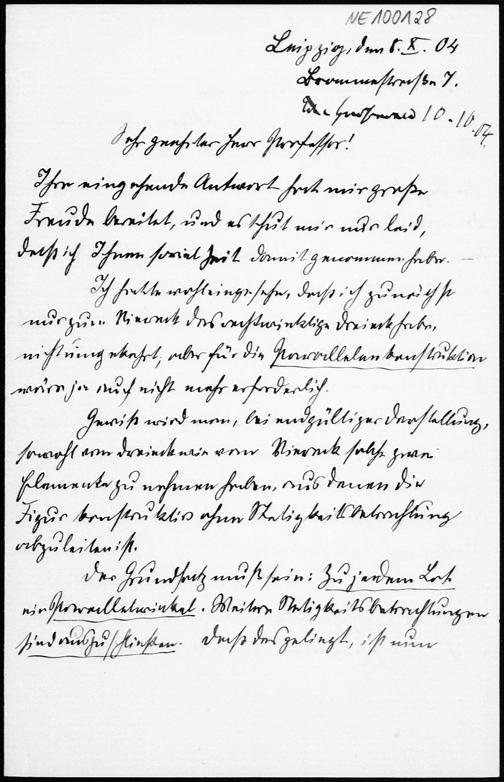 NE100128
Leipzig, den 8. X. 04
Brommestraße 7.
10.10.04.
Sehr geehrter Herr Professor!
Ihre eingehende Antwort hat mir große
Freude bereitet, und es thut mir nur leid,
daß ich Ihnen soviel Zeit damit genommen habe. –
Ich hatte wohl eingesehen, daß ich zunächst
nur zum Viereck das rechtwinklige Dreieck habe,
nicht umgekehrt, aber für die Parallelenkonstruktion
wäre ja auch nicht mehr erforderlich.
Gewiß wird man, bei endgültiger Darstellung,
sowohl vom Dreieck wie vom Viereck solche zwei
Elemente zu nehmen haben, aus denen die
Figur konstruktiv ohne Stetigkeitsbetrachtung
abzuleiten ist.
Der Grundsatz muß sein: Zu jedem Lot
ein Parallelwinkel. Weitere Stetigkeitsbetrachtungen
sind auszuschließen. Daß das gelingt, ist nun